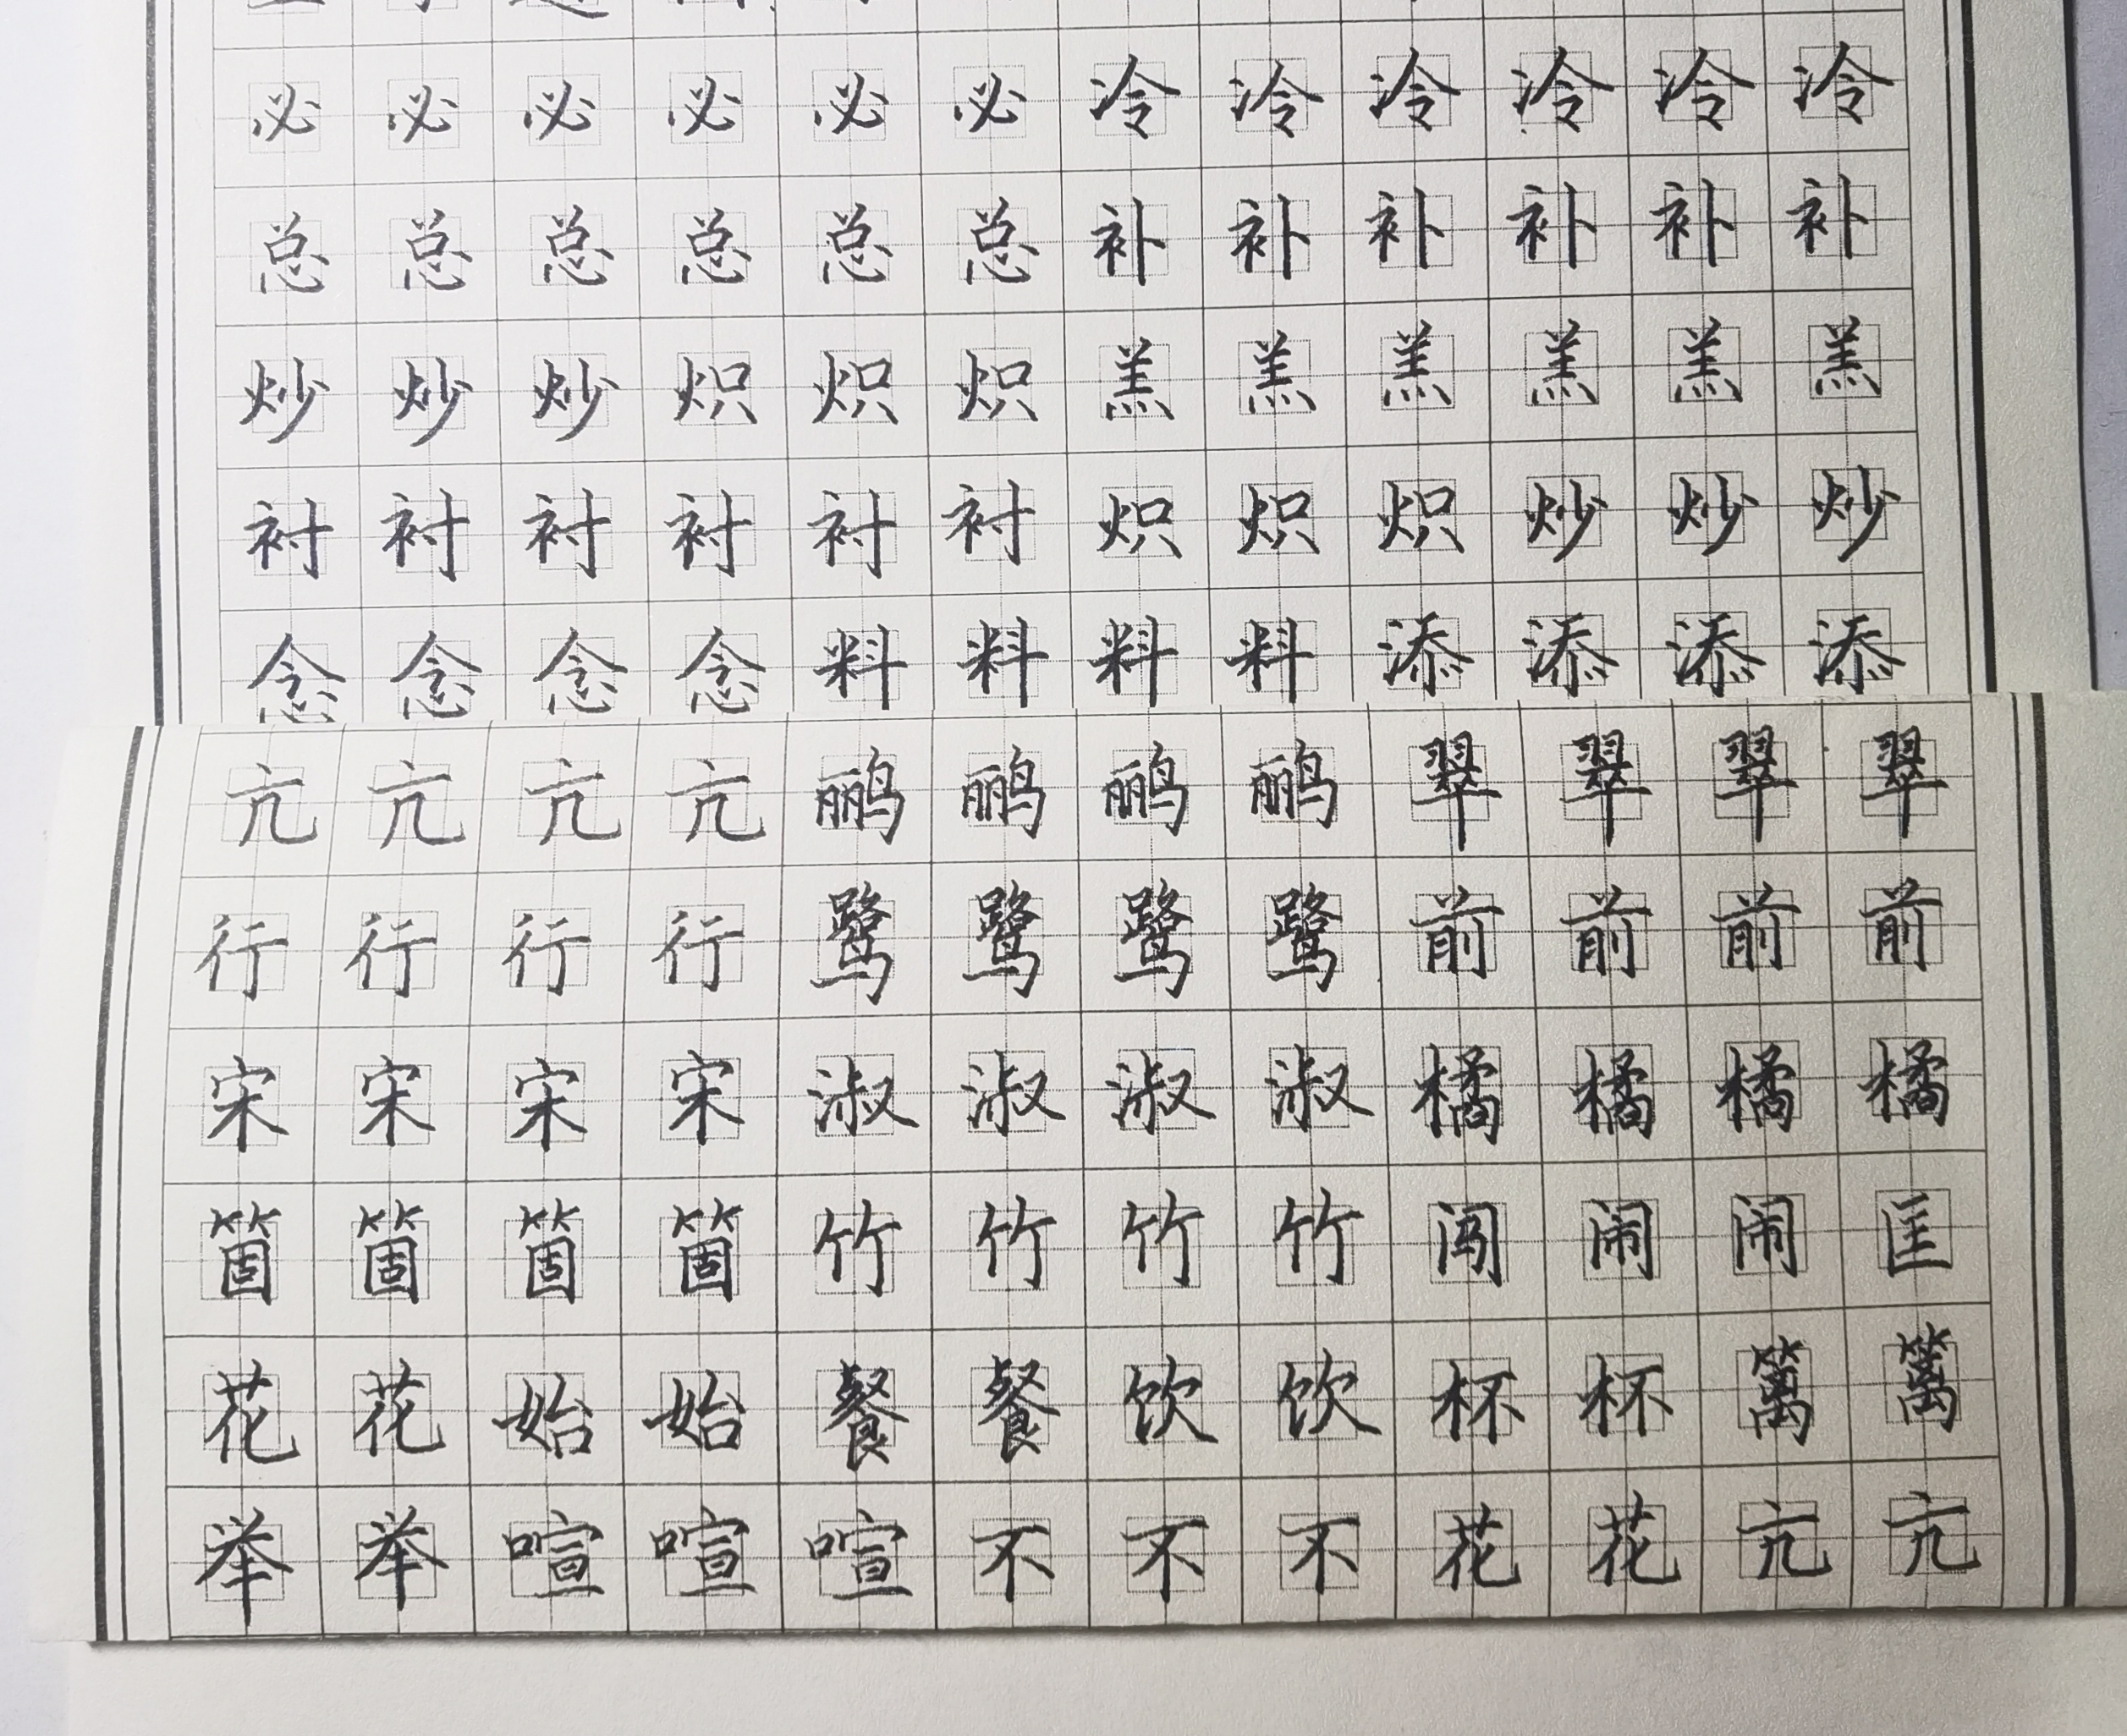 必必必必必必冷冷冷冷冷冷
总总总总总总补补补补补补
炒炒炒炽炽炽羔羔羔羔羔羔
衬衬衬衬衬衬炽炽炽炒炒炒
念念念念料料料料添添添添
亢亢亢亢鹂鹂鹂鹂翠翠翠翠
行行行行鹭鹭鹭鹭前前前前
宋宋宋宋淑淑淑淑橘橘橘橘
箇箇箇箇竹竹竹竹闯闹闹匡
花花始始餐餐饮饮杯杯篱篱
举举喧喧喧不不不花花亢亢